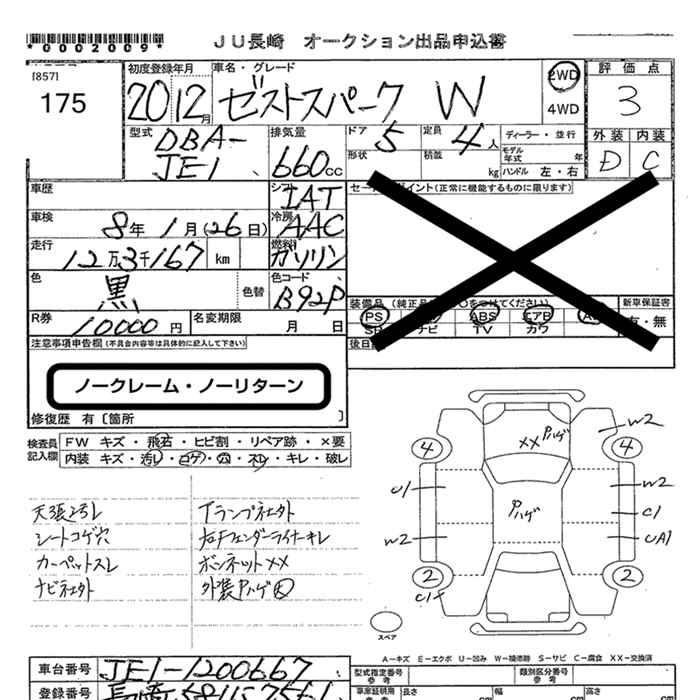 *0002009*
JU長崎 オークション出品申込書
[857]
175
初度登録年月
20 12月
車名・グレード
ゼストスパーク W
2WD
4WD
評価点
3
外装 内装
D C
型式
DBA-
JE1
排気量
660cc
ドア 5
定員 4人
形状
積載 kg
ディーラー・並行
モデル年式 年
ハンドル 左・右
車歴
シフト
IAT
車検
8年1月(26日)
冷房
AAC
走行
12万3千167 km
燃料
ガソリン
色
黒
色替
色コード
B92P
R券
10000円
名変期限 月 日
装備品
PS
ABS
エアB
ナビ
TV
カワ
新車保証書
有・無
後日
注意事項申告欄(不具合内容等は具体的に記入して下さい)
ノークレーム・ノーリターン
修復歴 有〔箇所 〕
検査員記入欄
FW キズ・飛石・ヒビ割・リペア跡・×要
内装 キズ・汚レ・コゲ・穴・ネレ・キレ・破レ
天張2号レ
シートコゲ穴
カーペットスレ
ナビ社外
Tランプ社外
右Fフェンダーライナーキレ
ボンネットXX
外装Pハゲ大
W2
XX Pハゲ
4
4
U1
W2
Pハゲ
C1
W2
UA1
2
2
C1
スペア
A-キズ E-エクボ U-凹み W-補修跡 S-サビ C-腐食 XX-交換済
車台番号
JE1-1200667
登録番号
型式指定番号
類別区分番号
長さ
幅
高さ